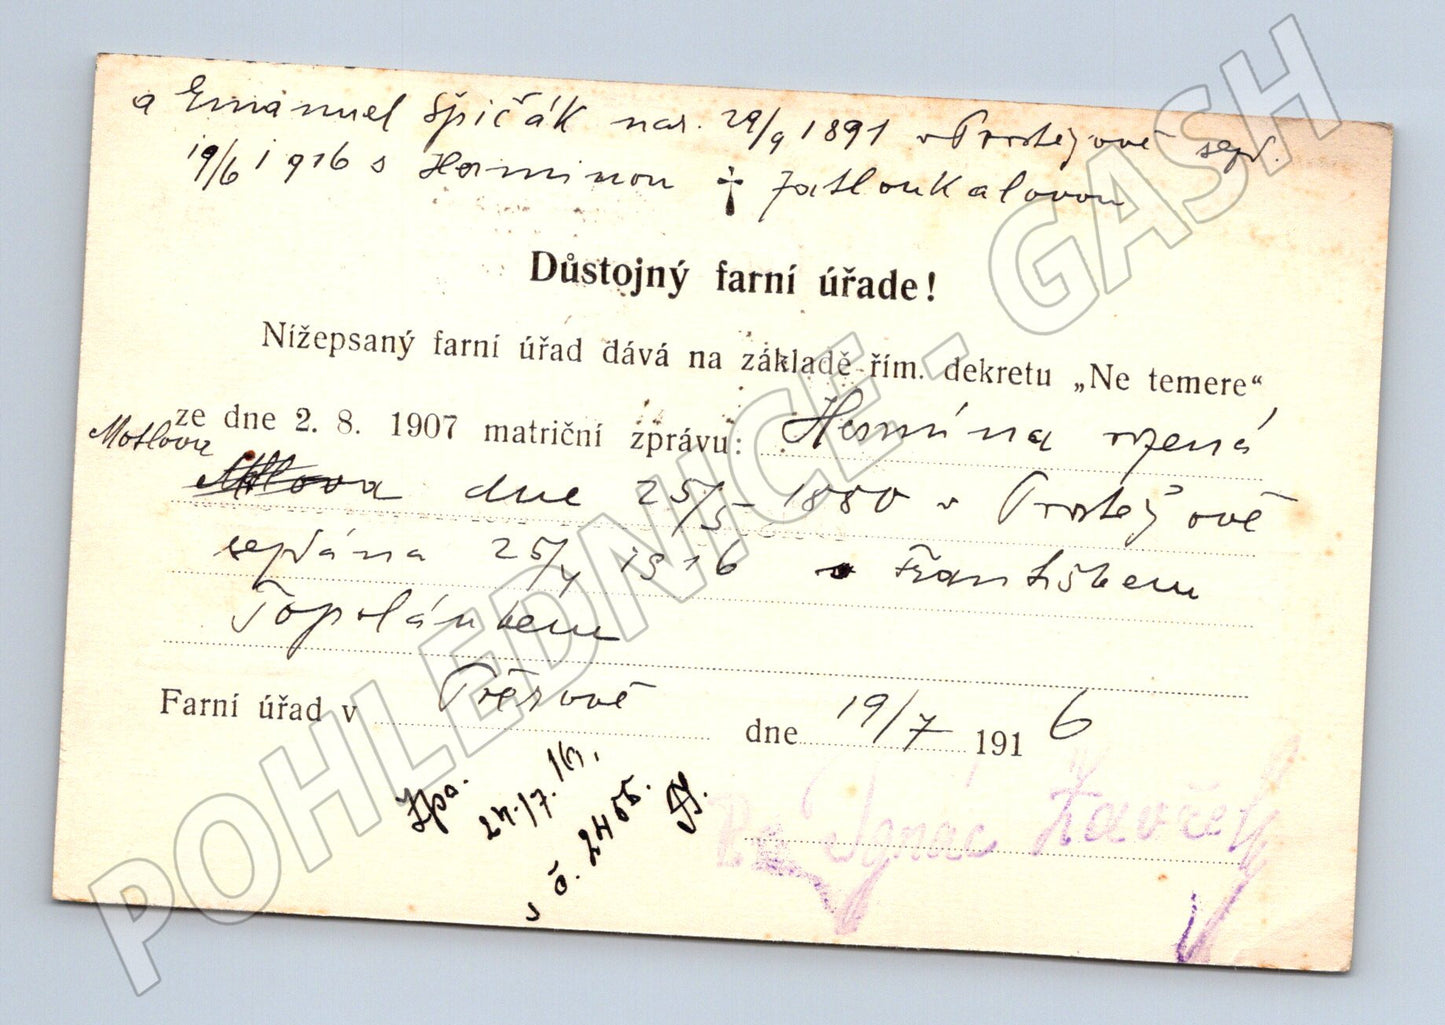 a Emanuel Špičák nar. 29/9 1891 v Prostějově sezd.
19/6 1916 s Herminou Zatloukalovou
Důstojný farní úřade!
Nížepsaný farní úřad dává na základě řím. dekretu „Ne temere“
ze dne 2. 8. 1907 matriční zprávu: Hermína rozená
Motlova
dne 25/5 1880 v Prostějově
sezdána 25/4 1916 s Františkem
Topolánkem
Farní úřad v Přerově dne 19/7 1916
24./7. 16.
č. 2455.
Ignác Zavřel
POHLEDNICE - GASH